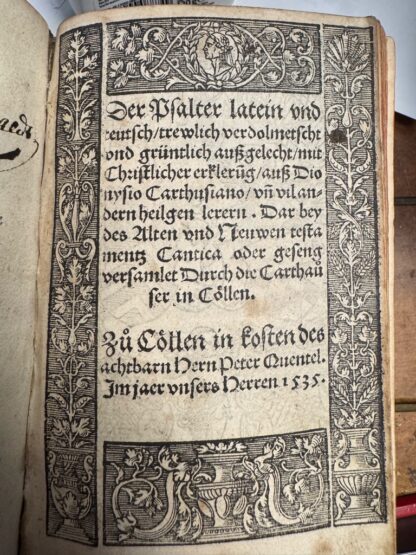 Der Psalter latein vnd
teutsch/trewlich verdolmetscht
vnd grüntlich außgelecht/mit
Christlicher erklerũg/auß Dio
nysio Carthusiano/vñ vil an-
dern heilgen lerern. Dar bey
des Alten vnd Neuwen testa
mentz Cantica oder geseng
versamlet Durch die Carthaü
ser in Cöllen.
Zů Cöllen in kosten des
achtbarn Hern Peter Quentel.
Im jaer vnsers Herren 1535.